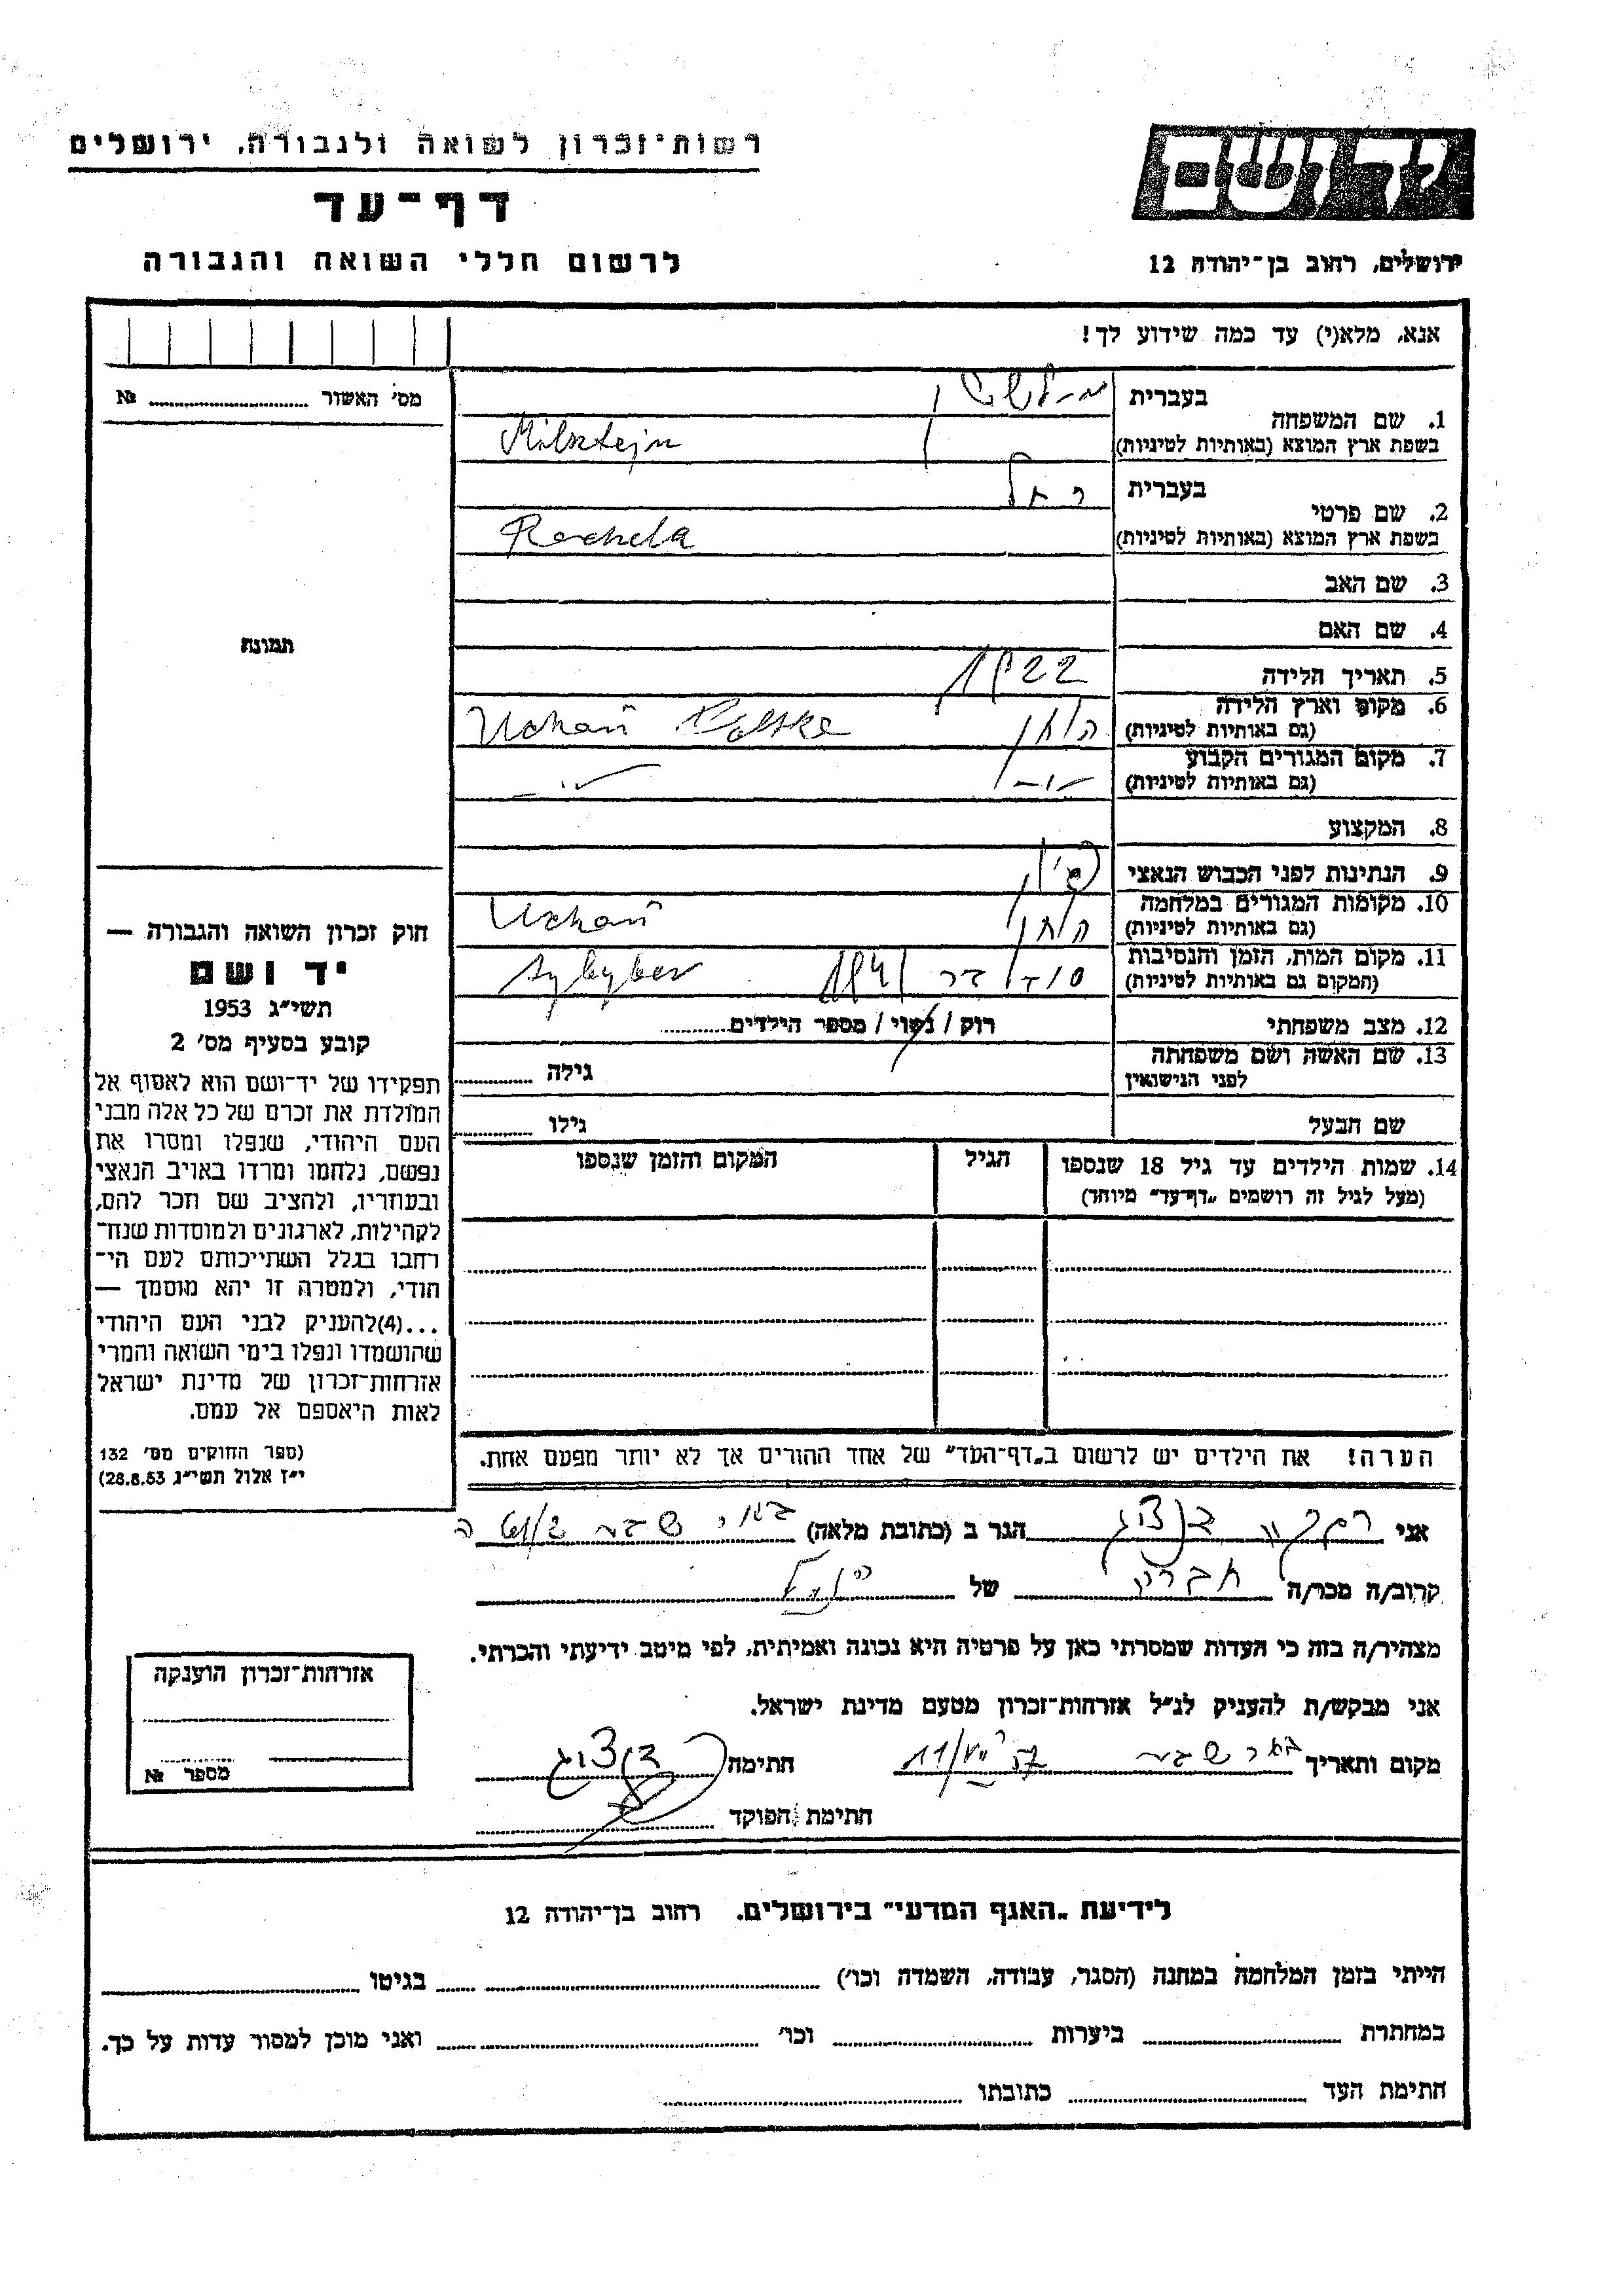 רשות־זכרון לשואה ולגבורה, ירושלים
יד ושם
דף־עד
לרשום חללי השואה והגבורה
ירושלים, רחוב בן־יהודה 12
אנא, מלא(י) עד כמה שידוע לך!
מס' האשור № 
1. שם המשפחה
בעברית
בשפת ארץ המוצא (באותיות לטיניות) Milsztejn
2. שם פרטי
בעברית רחל
בשפת ארץ המוצא (באותיות לטיניות) Rachela
3. שם האב
4. שם האם
תמונה
5. תאריך הלידה 1922
6. מקום וארץ הלידה
(גם באותיות לטיניות) Uchań Polska
7. מקום המגורים הקבוע
(גם באותיות לטיניות)
8. המקצוע
9. הנתינות לפני הכבוש הנאצי פולין
10. מקומות המגורים במלחמה
(גם באותיות לטיניות) Uchań
11. מקום המות, הזמן והנסיבות
(המקום גם באותיות לטיניות)
12. מצב משפחתי רוק / נשוי / מספר הילדים
13. שם האשה ושם משפחתה
לפני הנישואין גילה
שם הבעל גילו
14. שמות הילדים עד גיל 18 שנספו הגיל המקום והזמן שנספו
(מעל לגיל זה רושמים „דף־עד" מיוחד)
הערה! את הילדים יש לרשום ב„דף־העד" של אחד ההורים אך לא יותר מפעם אחת.
חוק זכרון השואה והגבורה —
יד ושם
תשי"ג 1953
קובע בסעיף מס' 2
תפקידו של יד־ושם הוא לאסוף אל
המולדת את זכרם של כל אלה מבני
העם היהודי, שנפלו ומסרו את
נפשם, נלחמו ומרדו באויב הנאצי
ובעוזריו, ולהציב שם וזכר להם,
לקהילות, לארגונים ולמוסדות שנח־
רחבו בגלל השתייכותם לעם הי־
הודי, ולמטרה זו יהא מוסמך —
...(4)להעניק לבני העם היהודי
שהושמדו ונפלו בימי השואה והמרי
אזרחות־זכרון של מדינת ישראל
לאות היאספם אל עמם.
(ספר החוקים מס' 132
י"ז אלול תשי"ג 28.8.53)
אני הגר ב (כתובת מלאה) באר שבע
קרוב/ה מכר/ה חברה של
מצהיר/ה בזה כי העדות שמסרתי כאן על פרטיה היא נכונה ואמיתית, לפי מיטב ידיעתי והכרתי.
אני מבקש/ת להעניק לנ"ל אזרחות־זכרון מטעם מדינת ישראל.
מקום ותאריך באר שבע חתימה
חתימת הפוקד
אזרחות־זכרון הוענקה
מספר №
לידיעת „האגף המדעי" בירושלים. רחוב בן־יהודה 12
הייתי בזמן המלחמה במחנה (הסגר, עבודה, השמדה וכו') בגיטו
במחתרת ביערות וכו' ואני מוכן למסור עדות על כך.
חתימת העד כתובתו